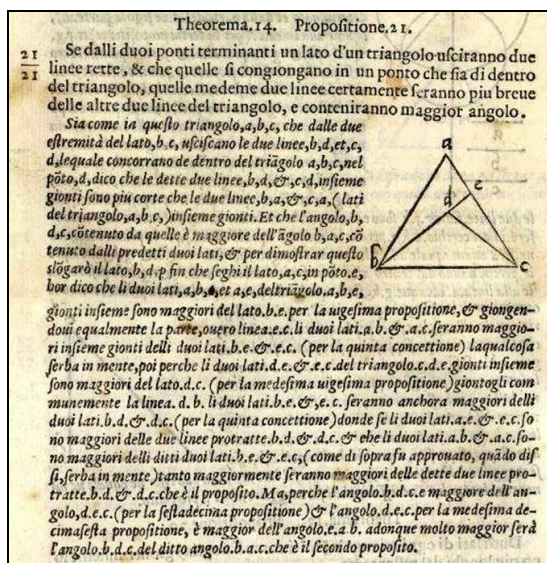 Theorema.14. Propositione.21.
21
21
Se dalli duoi ponti terminanti un lato d'un triangolo usciranno due
linee rette, & che quelle si congiongano in un ponto che sia di dentro
del triangolo, quelle medeme due linee certamente seranno piu breue
delle altre due linee del triangolo, e conteniranno maggior angolo.
Sia come in questo triangolo,a,b,c, che dalle due
estremità del lato,b,c, usciscano le due linee,b,d,et,c,
d,lequale concorrano de dentro del triãgolo a,b,c,nel
põto,d,dico che le dette due linee,b,d,&,c,d,insieme
gionti sono piu corte che le due linee,b,a,&,c,a,(lati
del triangolo,a,b,c,)insieme gionti. Et che l'angolo,b,
d,c,cõtenuto da quelle è maggiore dell'ãgolo b,a,c,cõ
tenuto dalli predetti duoi lati,& per dimostrar questo
slõgarò il lato,b,d,p fin che seghi il lato,a,c,in põto.e,
hor dico che li duoi lati,a,b,et,a,e,del triãgolo.a,b,e,
gionti insieme sono maggiori del lato.b.e.per la uigesima propositione,& giongen-
doui equalmente la parte,ouero linea.e.c.li duoi lati.a.b.&.a.c.seranno maggio-
ri insieme gionti delli duoi lati.b.e.&.e.c. (per la quinta concettione) laqualcosa
serba in mente,poi perche li duoi lati.d.e.&.e.c.del triangolo.c.d.e.gionti insieme
sono maggiori del lato.d.c. (per la medesima uigesima propositione)giontogli com
munemente la linea. d. b. li duoi lati.b.e.&,e.c. seranno anchora maggiori delli
duoi lati.b.d.&.d.c.(per la quinta concettione)donde se li duoi lati.a.e.&.e.c.so
no maggiori delle due linee protratte.b.d.&.d.c.& che li duoi lati.a.b.&.a.c.so-
no maggiori delli ditti duoi lati.b.e.&.e.c,(come di sopra fu approuato, quãdo dis
si,serba in mente)tanto maggiormente seranno maggiori delle dette due linee pro-
tratte.b.d.&.d.c.che è il proposito.Ma,perche l'angolo.b.d.c.e maggiore dell'an-
golo,d.e.c.(per la sestadecima propositione)& l'angolo.d.e.c.per la medesima de-
cimasesta propositione, è maggior dell'angolo.e.a b. adonque molto maggior serà
l'angolo.b.d.c.del ditto angolo.b.a.c.che è il secondo proposito.
a
e
d
b
c